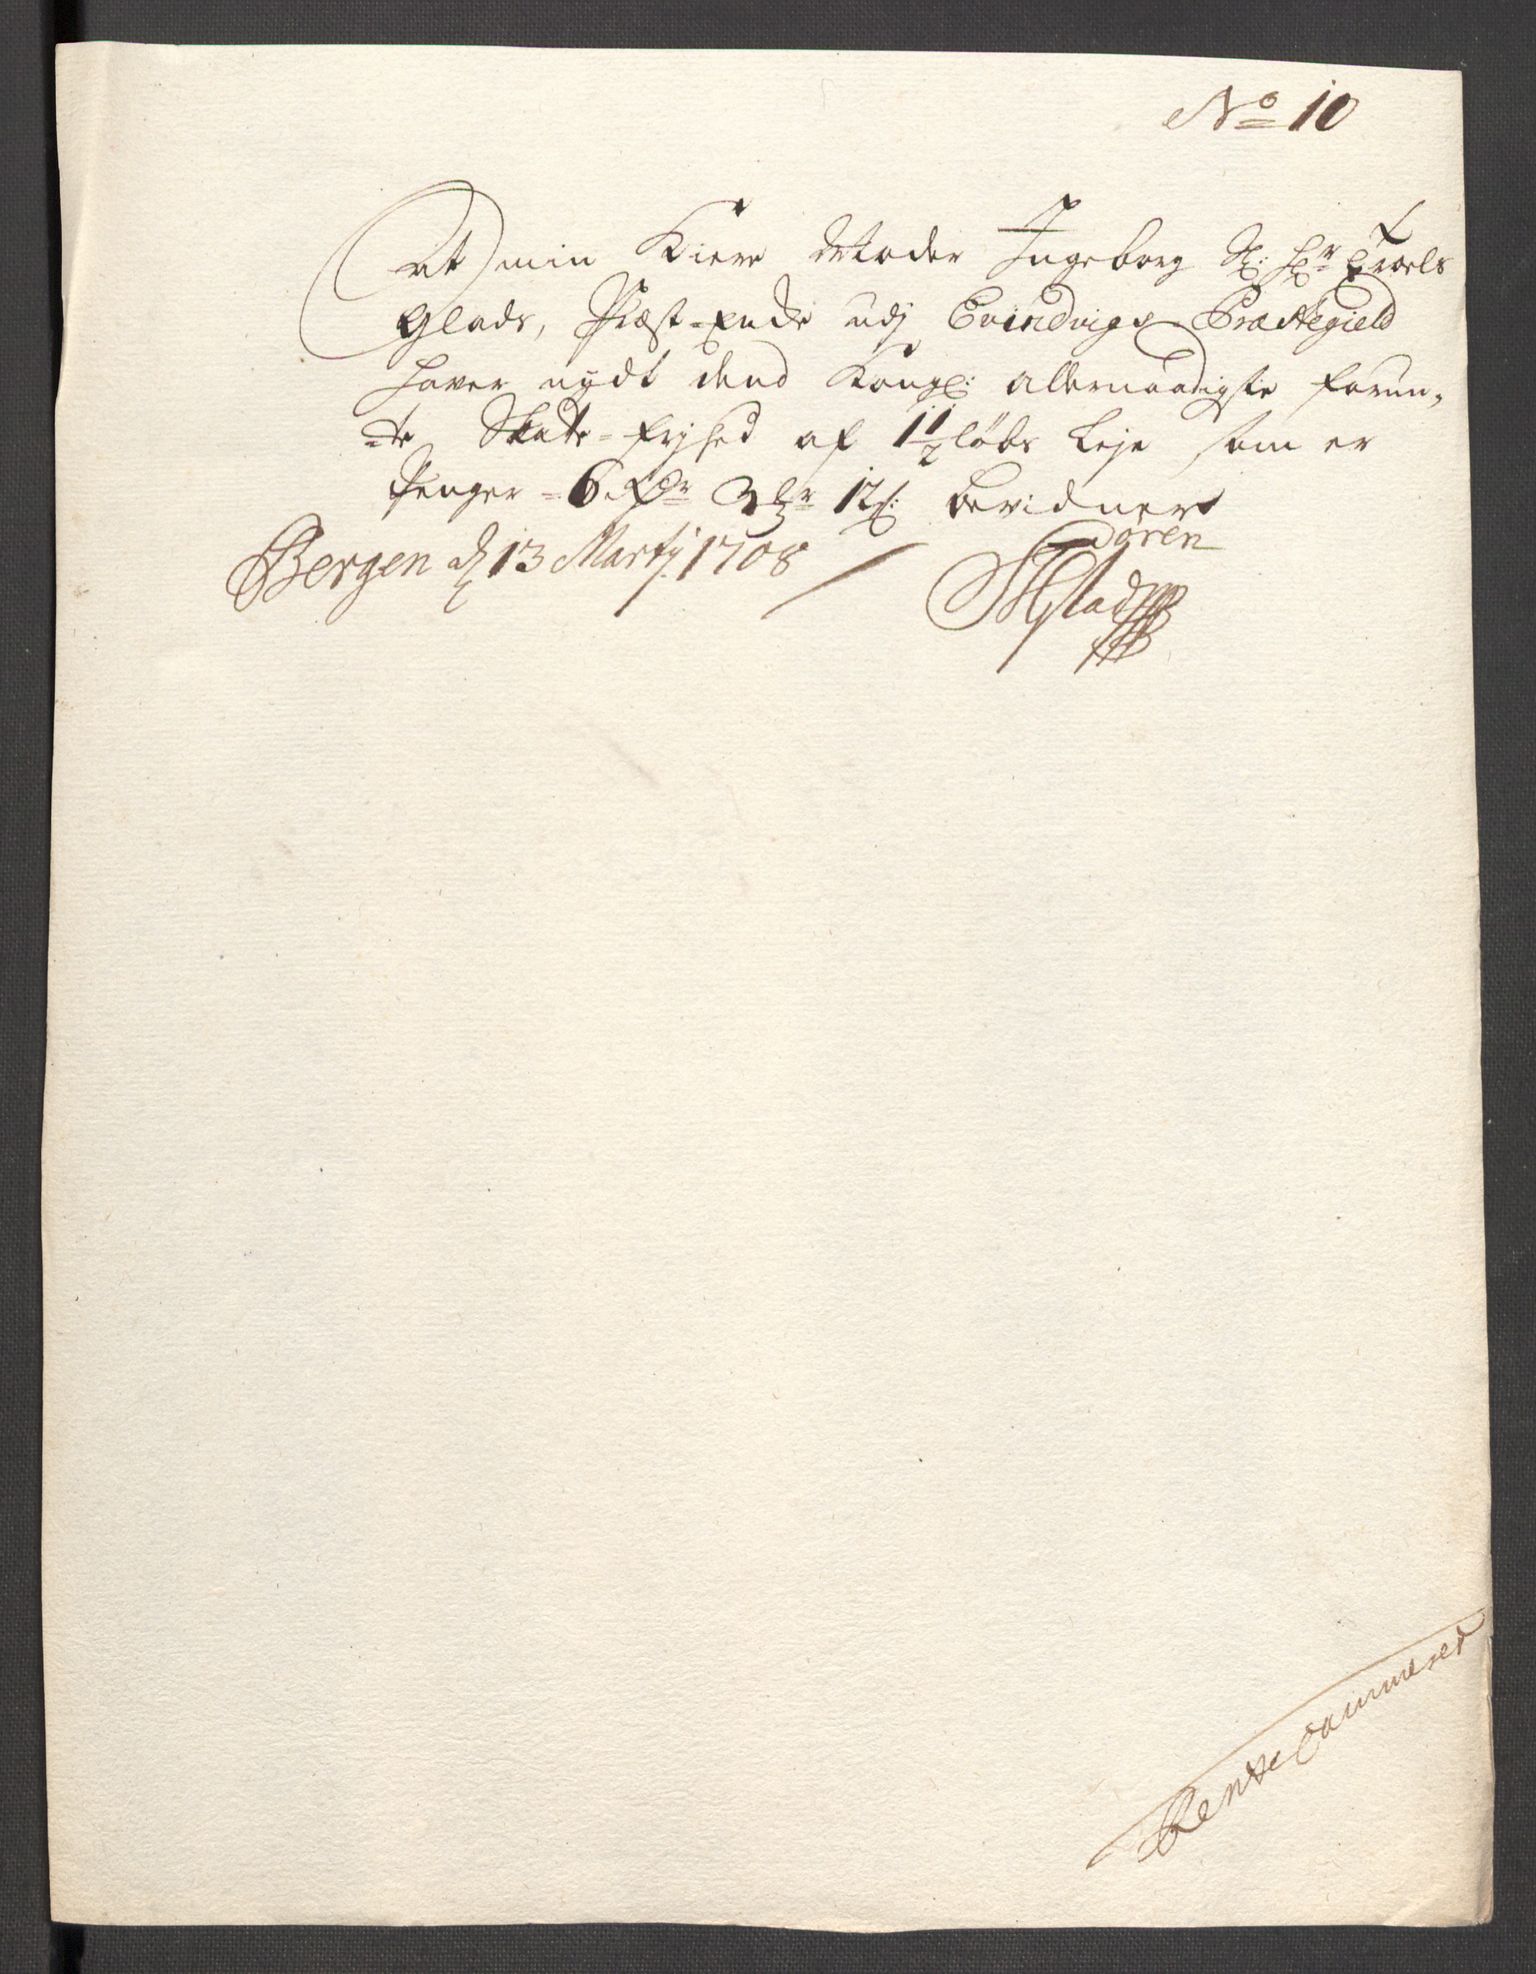 No 10
At min Kiere Moder Ingeborg Sl: Hr Troels
Glads, Præst-Enke udj Evindvigs Præstegield
haver nydt dend Kongl: allernaadigste forun,
-te Skatte-frjhed af 1½ løbs Leje som er
Penger - 6 Rdr 3 12 s: bevidner
Bergen d 13 Martij 1708
Sören
Glad
Rente Cammeret